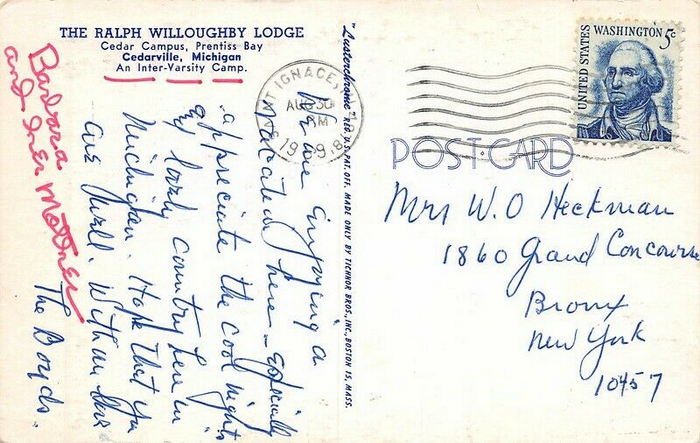 THE RALPH WILLOUGHBY LODGE
Cedar Campus, Prentiss Bay
Cedarville, Michigan
An Inter-Varsity Camp.
We are enjoying a
vacation here - especially
appreciate the cool nights
lovely country here in
Michigan. Hope that you
are well. With our love
The Boyds.
Barbara
and her Mother
"Lusterchrome" REG. U.S. PAT. OFF. MADE ONLY BY TICHNOR BROS., INC., BOSTON 15, MASS.
SAINT IGNACE,
AUG 30
PM
19
UNITED STATES
WASHINGTON 5c
POST CARD
Mrs W. O Heckman
1860 Grand Concourse
Bronx
New York
10457